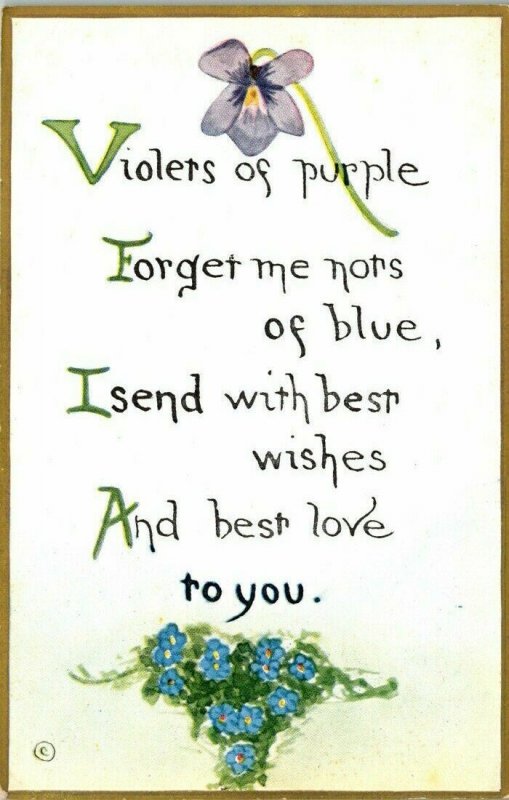 Violets of purple
Forget me nots
of blue,
I send with best
wishes
And best love
to you.
©